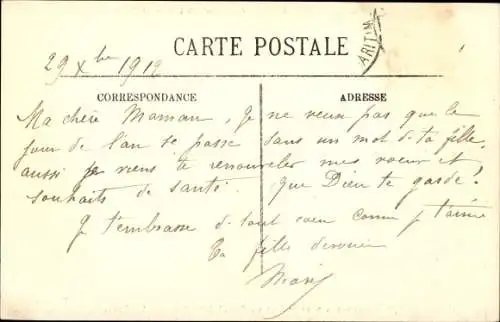 29 Xbre 1912
CARTE POSTALE
ARITIM
CORRESPONDANCE
ADRESSE
Ma chère Maman, Je ne veux pas que le
jour de l'an se passe sans un mot de ta fille,
aussi je viens te renouveler mes voeux et
souhaits de santé que Dieu te garde!
J t'embrasse de tout coeur comme j t'aime
Ta fille
Marie